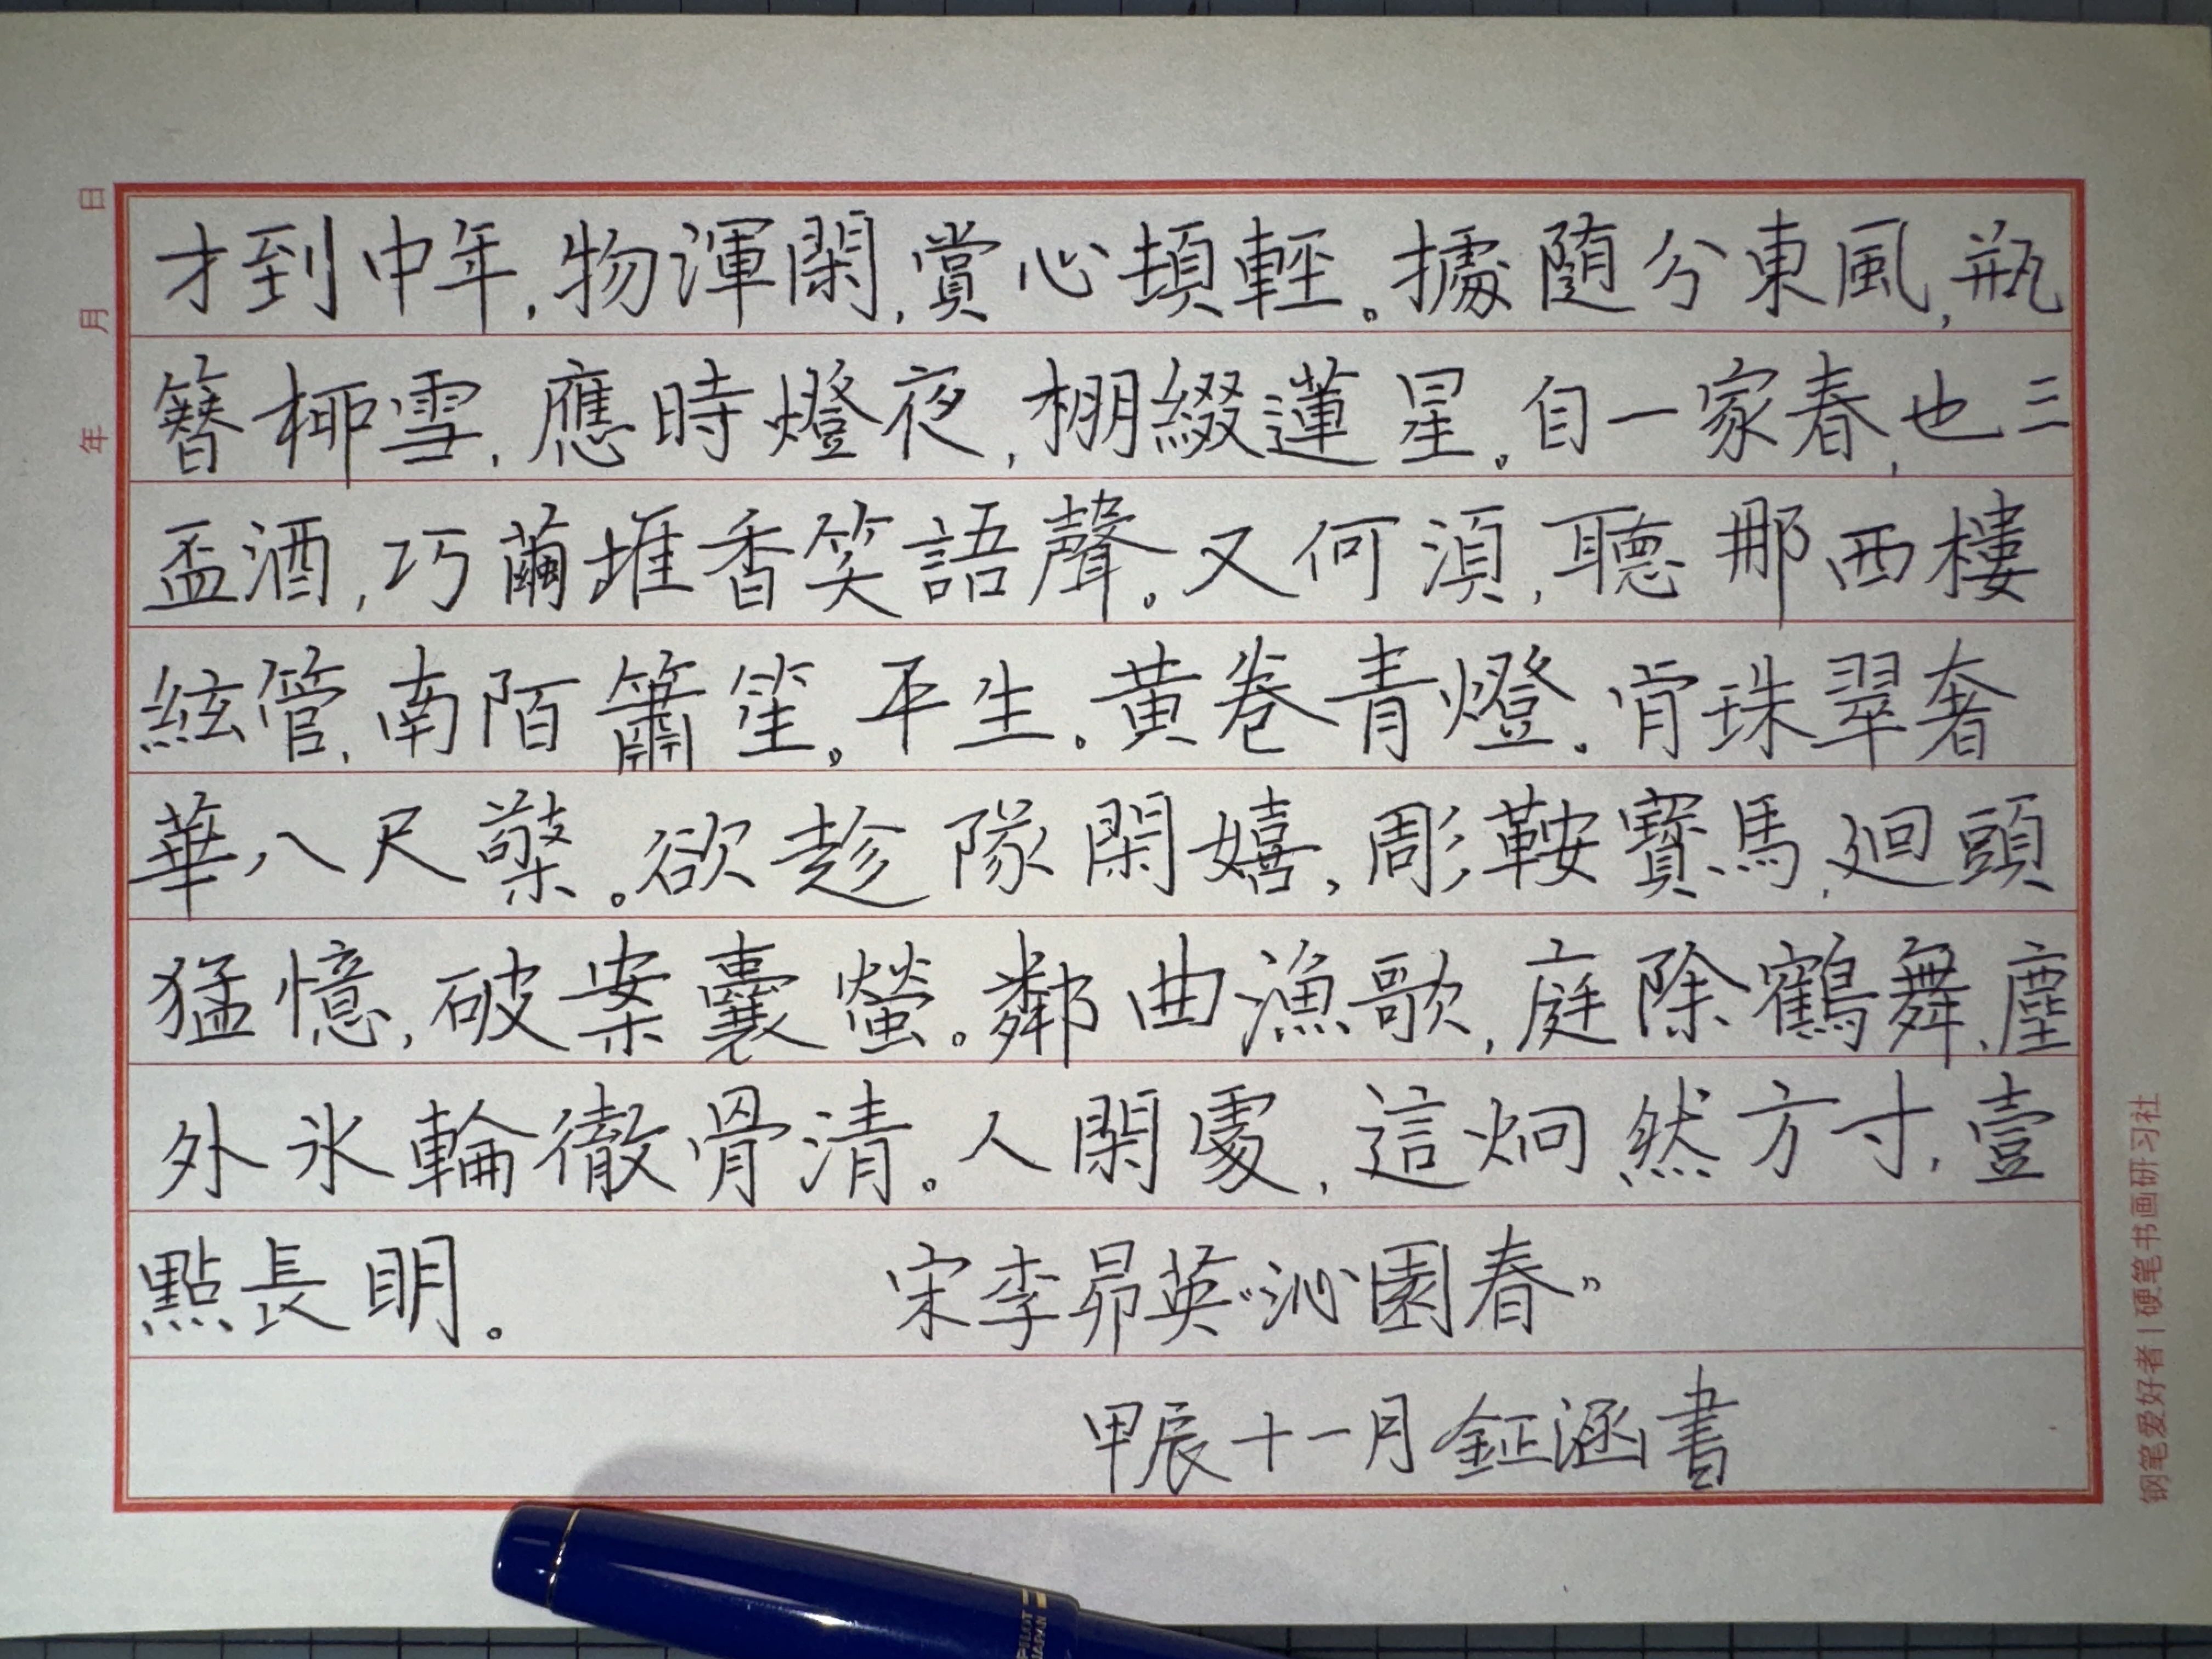 才到中年,物渾閑,賞心頓輕。據隨分東風,瓶
簪梛雪,應時燈夜,棚綴蓮星。自一家春,也三
盃酒,巧繭堆香笑語聲。又何湏,聽那西樓
絃管,南陌簫笙。平生。黃卷青燈。肯珠翠奢
華八尺檠。欲趁隊閑嬉,彫鞍寶馬,廻頭
猛憶,破案囊螢。鄰曲漁歌,庭除鶴舞,塵
外氷輪徹骨清。人閑處,這炯然方寸,壹
點長明。
宋李昴英“沁園春”
甲辰十一月鉦涵書
年 月 日
钢笔爱好者|硬笔书画研习社
PILOT
JAPAN